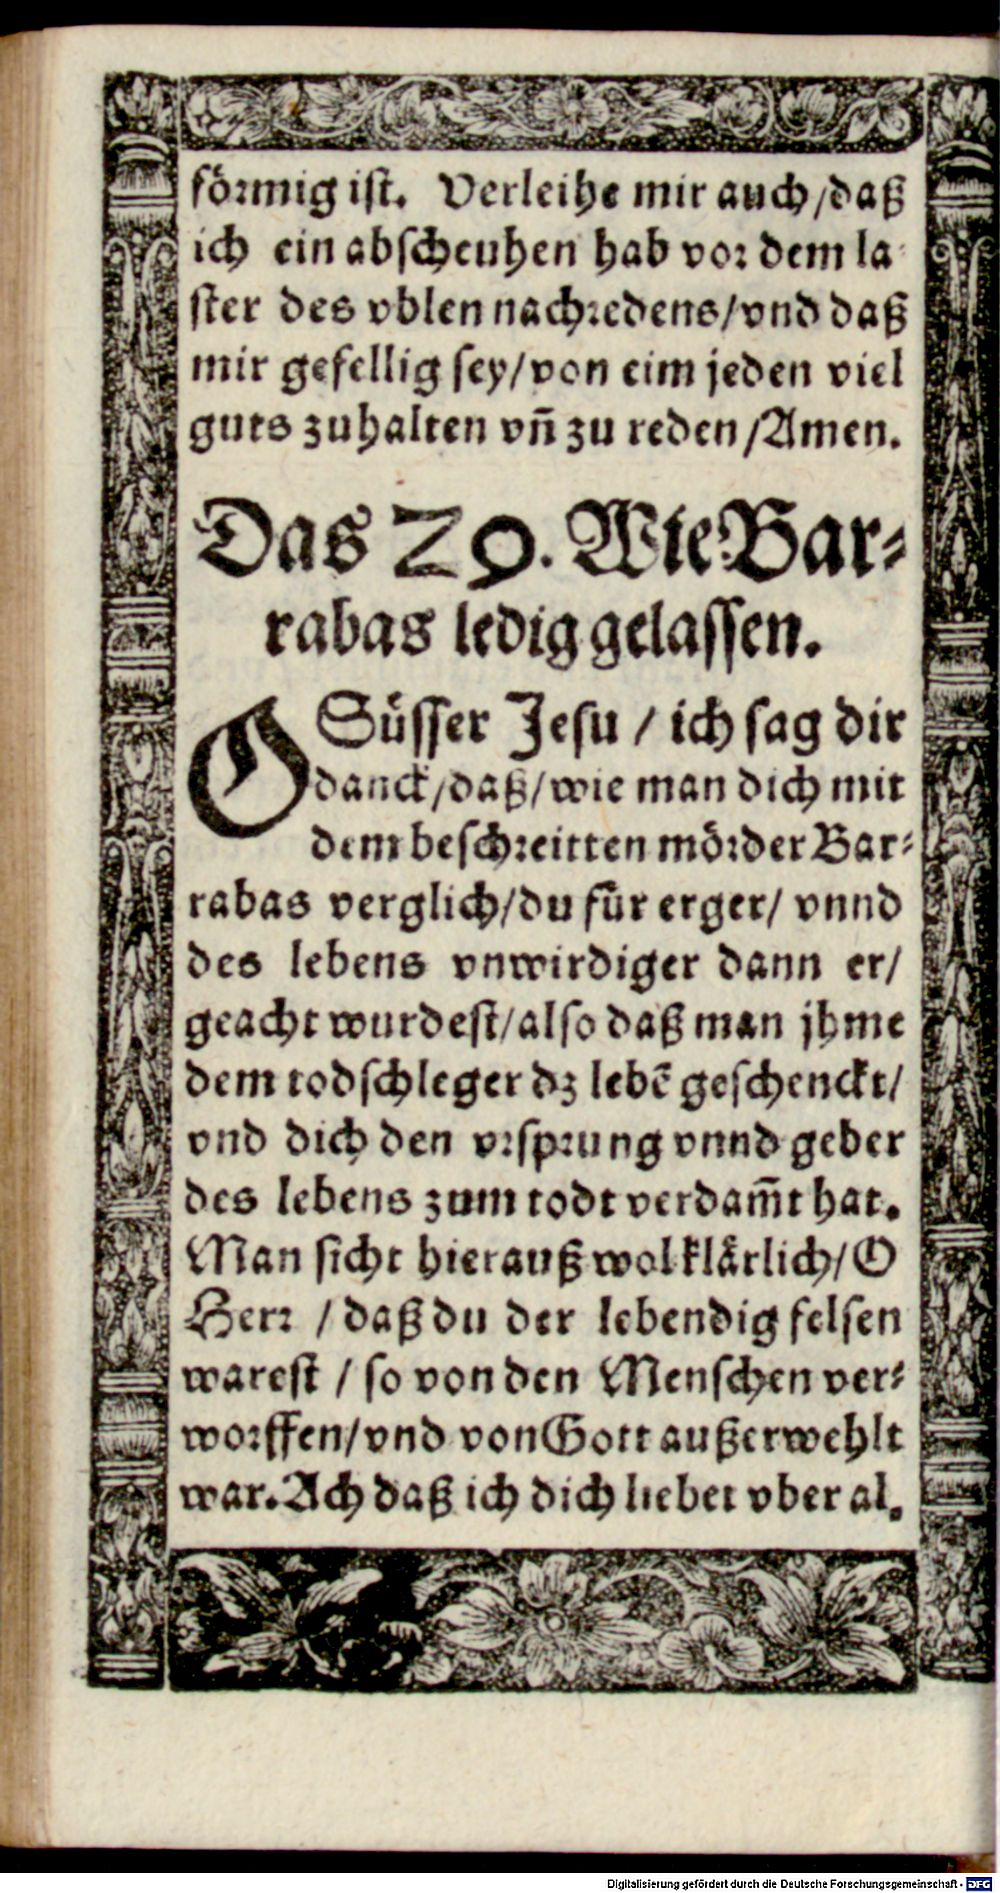 förmig ist. Verleihe mir auch/daß
ich ein abscheuhen hab vor dem la
ster des vblen nachredens/vnd daß
mir gefellig sey/von eim jeden viel
guts zuhalten vn̄ zu reden/Amen.
Das 29. Wie Bar⸗
rabas ledig gelassen.
O Süsser Jesu / ich sag dir
danck/daß/wie man dich mit
dem beschreitten mörder Bar⸗
rabas verglich/du für erger/ vnnd
des lebens vnwirdiger dann er/
geacht wurdest/also daß man jhme
dem todschleger dz lebē geschenckt/
vnd dich den vrsprung vnnd geber
des lebens zum todt verdam̄t hat.
Man sicht hierauß wol klärlich/O
Herr / daß du der lebendig felsen
warest / so von den Menschen ver⸗
worffen/vnd von Gott außerwehlt
war. Ach daß ich dich liebet vber al.
Digitalisierung gefördert durch die Deutsche Forschungsgemeinschaft - DFG